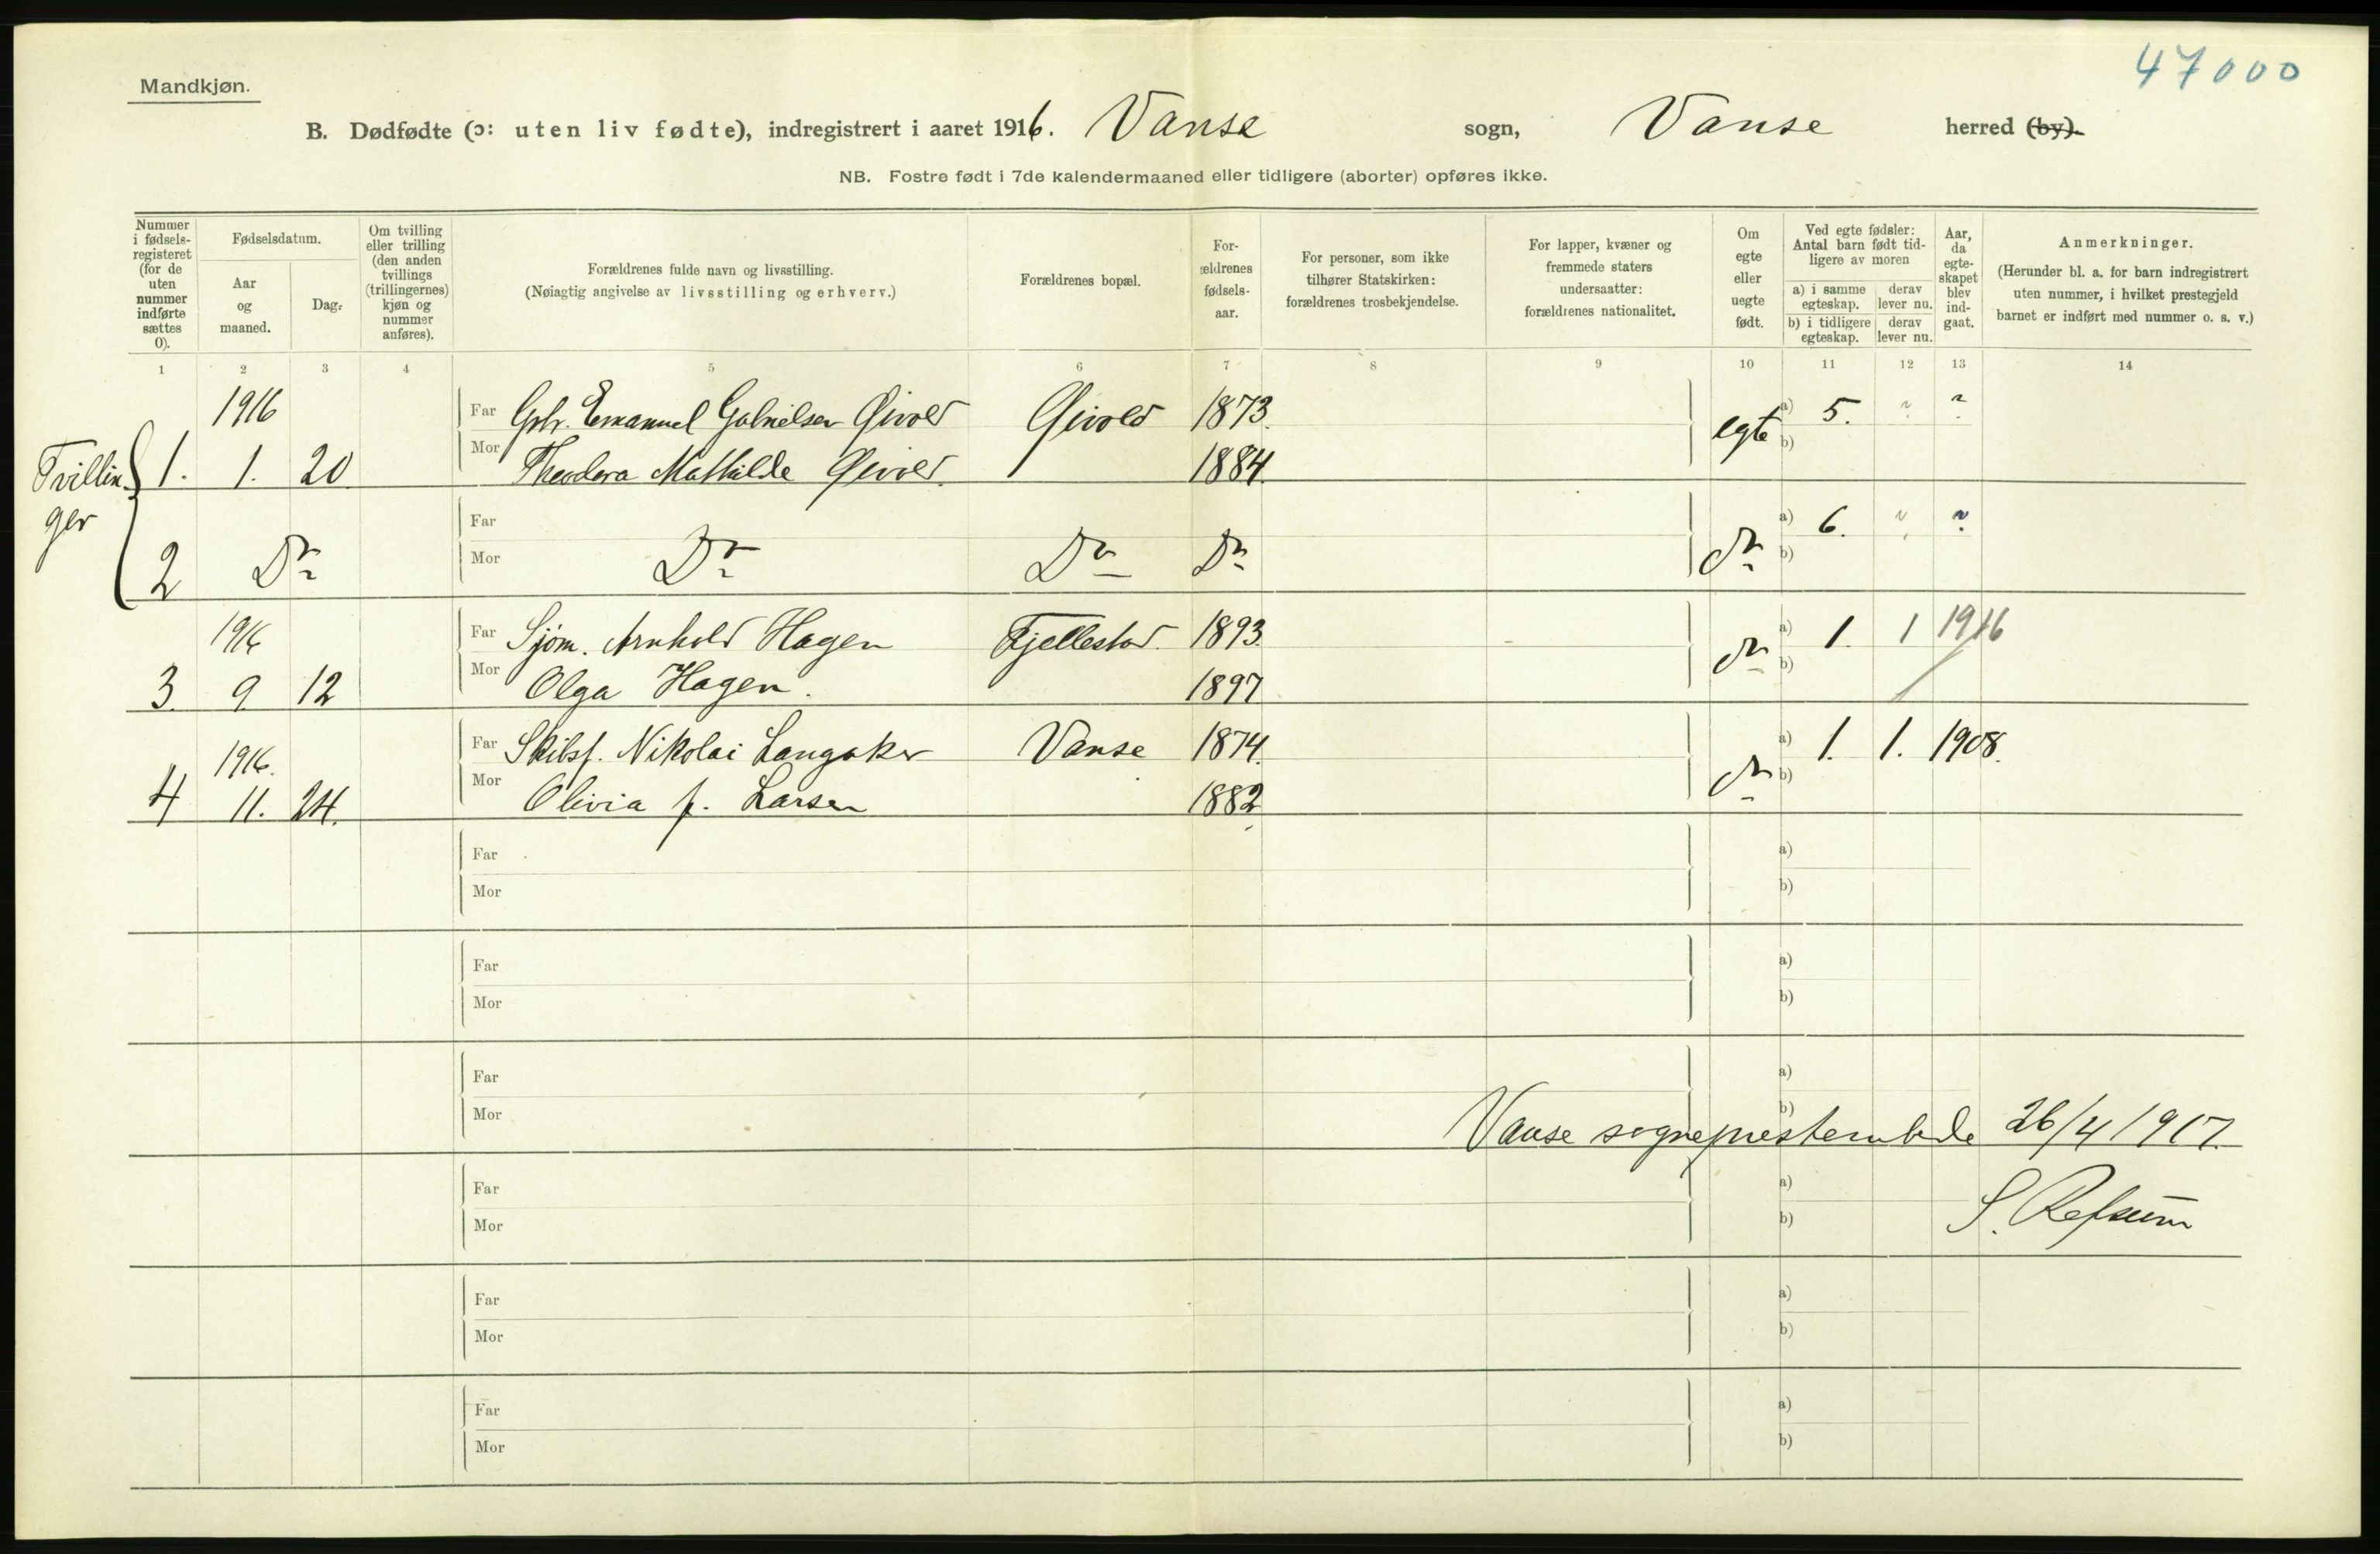 47000
Mandkjøn.
B. Dødfødte (ɔ: uten liv fødte), indregistrert i aaret 1916. Vanse sogn, Vanse herred (by).
NB. Fostre født i 7de kalendermaaned eller tidligere (aborter) opføres ikke.
Nummer i fødsels-registeret (for de uten nummer indførte sættes 0).
Fødselsdatum.
Aar og maaned.
Dag.
Om tvilling eller trilling (den anden tvillings (trillingernes) kjøn og nummer anføres).
Forældrenes fulde navn og livsstilling.
(Nøiagtig angivelse av livsstilling og erhverv.)
Forældrenes bopæl.
For-ældrenes fødsels-aar.
For personer, som ikke tilhører Statskirken: forældrenes trosbekjendelse.
For lapper, kvæner og fremmede staters undersaatter: forældrenes nationalitet.
Om egte eller uegte født.
Ved egte fødsler: Antal barn født tid-ligere av moren
a) i samme egteskap. derav lever nu.
b) i tidligere egteskap. derav lever nu.
Aar, da egte-skapet blev ind-gaat.
Anmerkninger.
(Herunder bl. a. for barn indregistrert uten nummer, i hvilket prestegjeld barnet er indført med nummer o. s. v.)
1 2 3 4 5 6 7 8 9 10 11 12 13 14
1916 Far Emanuel Gabrielsen 1873. egte a) 5. " ?
Tvillinger 1. 1. 20 Mor Theodora Mathilde 1884. b)
Far a) 6. " ?
2 Do Mor Do Do Do do b)
1916 Far Sjøm. Arnhold Hagen Fjellestad. 1893. do a) 1. 1 1916
3 9 12 Mor Olga Hagen. 1897 b)
1916. Far Skibsf. Nikolai Langaker Vanse 1874. do a) 1. 1. 1908.
4 11. 24. Mor Olivia f. Larsen 1882 b)
Far a)
Mor b)
Far a)
Mor b)
Far a)
Mor b)
Vanse sogneprestembede 26/4 1917.
Far a)
Mor b)
S. Refsum
Far a)
Mor b)
Far a)
Mor b)